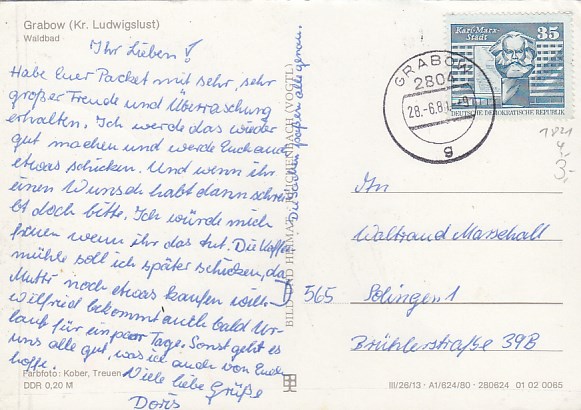 Grabow (Kr. Ludwigslust)
Waldbad
Ihr Lieben!
Habe Euer Packet mit sehr, sehr
großer Freude und Überraschung
erhalten. Ich werde das wieder
gut machen und werde Euch auch
etwas schicken. Und wenn ihr
einen Wunsch habt dann schrei-
bt doch bitte. Ich würde mich
freuen wenn ihr das tut. Die Kaffee
mühle soll ich später schicken, da
Mutti noch etwas kaufen will.
Wilfried bekommt auch bald Ur-
laub für ein paar Tage. Sonst geht es
uns alle gut, was ich auch von Euch
hoffe.
Viele liebe Grüße
Doris
Die Sachen paßen alle genau.
Farbfoto: Kober, Treuen
DDR 0,20 M
BILD UND HEIMAT REICHENBACH (VOGTL)
Karl-Marx-
Stadt
35
DEUTSCHE DEMOKRATISCHE REPUBLIK
GRABOW
2804
28.-6.81
g
1821
4,-
3,-
An
Waltraud Marschall
565 Solingen 1
Brühlerstraße 39B
III/26/13 · A1/624/80 · 280624 01 02 0065